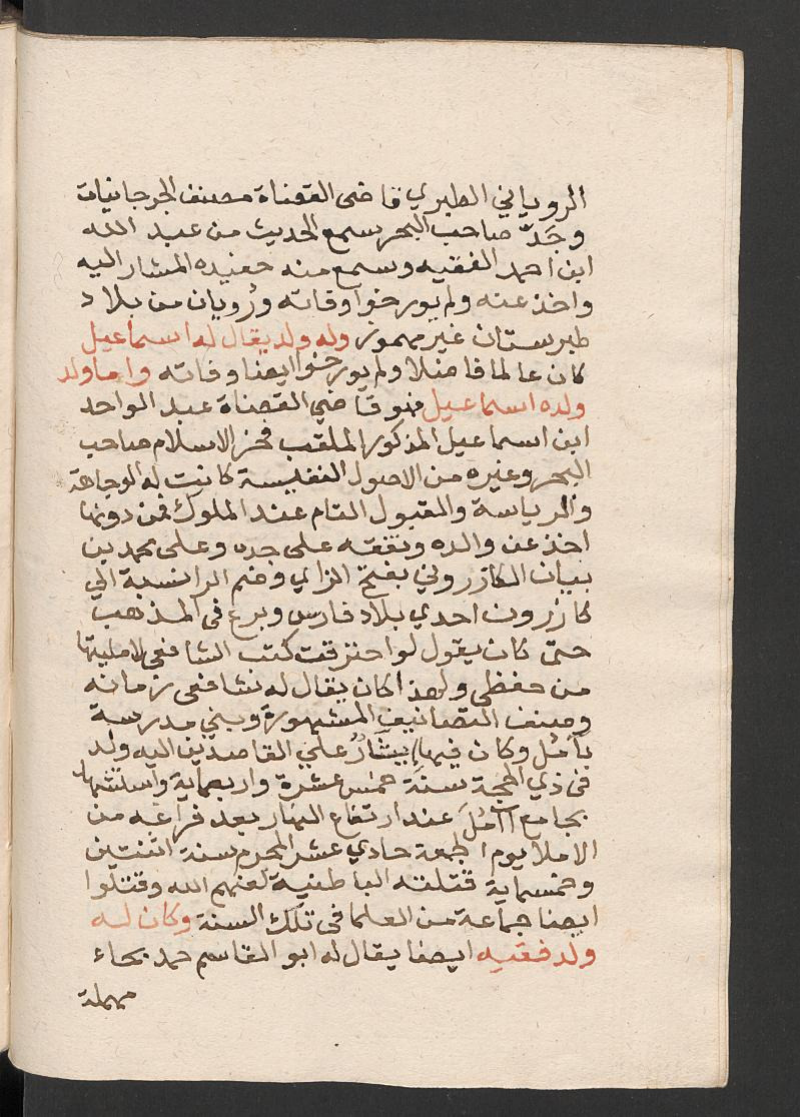 الروياني الطبري قاضى القضاة مصنف الجرجانيات
وجَدّ صاحب البحر سمع الحديث من عبد الله
ابن احمد الفقيه وسمع منه حفيده المشار اليه
واخذ عنه ولم يورخوا وفاته ورُويان من بلاد
طبرستان غير مهموز وله ولد يقال له اسماعيل
كان عالما فاضلا ولم يورخوا ايضا وفاته واما ولد
ولده اسماعيل فهو قاضي القضاة عبد الواحد
ابن اسماعيل المذكور الملقب فخر الاسلام صاحب
البحر وغيره من الاصول النفيسة كانت له الوجاهة
والرياسة والقبول التام عند الملوك فمن دونها
اخذ عن والده وتفقه على جده وعلى محمد بن
بيان الكازروني بفتح الزاي وضم الرا نسبة الي
كازرون احدي بلاد فارس وبرع فى المذهب
حتى كان يقول لو احترقت كتب الشافعى لامليتها
من حفظى ولهذا كان يقال له شافعى زمانه
وصنف التصانيف المشهورة وبني مدرسة
بآمُل وكان فيها إيثارٌ علي القاصدين اليه ولد
فى ذي الحجة سنة خمس عشرة واربعماية واستشهد
بجامع آمُلَ عند ارتفاع النهار بعد فراغه من
الاملا يوم الجمعة حادي عشر المحرم سنة اثنتين
وخمسماية قتلته الباطنية لعنهم الله وقتلوا
ايضا جماعة من العلما فى تلك السنة وكان له
ولد فقيه ايضا يقال له ابو القاسم حمد بحاء
مهملة